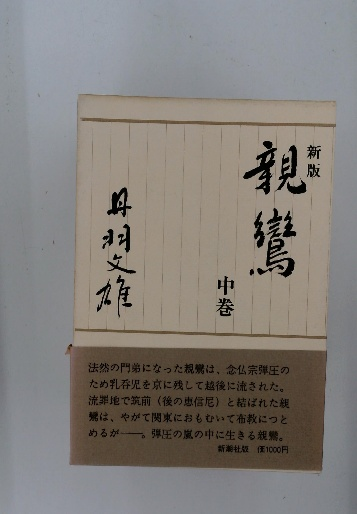 新版
親鸞
中巻
丹羽文雄
法然の門弟になった親鸞は、念仏宗弾圧の
ため乳呑児を京に残して越後に流された。
流罪地で筑前（後の恵信尼）と結ばれた親
鸞は、やがて関東におもむいて布教につと
めるが──。弾圧の嵐の中に生きる親鸞。
新潮社版 価1000円